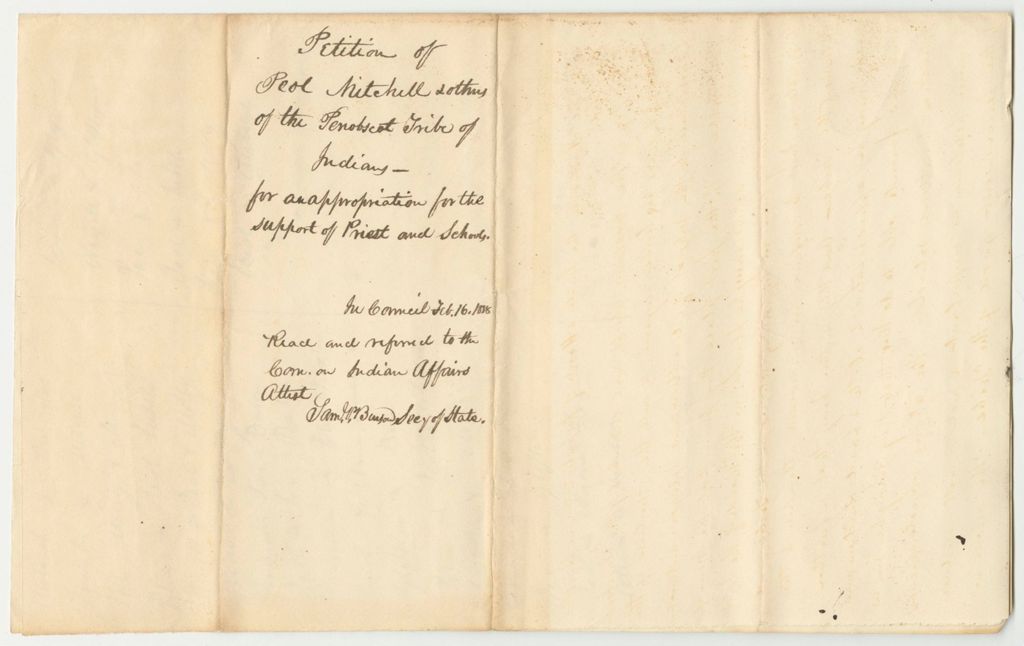 Petition of
Peol Mitchell & others
of the Penobscot Tribe of
Indians —
for an appropriation for the
support of Priest and Schools.
In Council Feb. 16. 1838
Read and referred to the
Com. on Indian Affairs
Attest
Saml. P. Benson Secy of State.